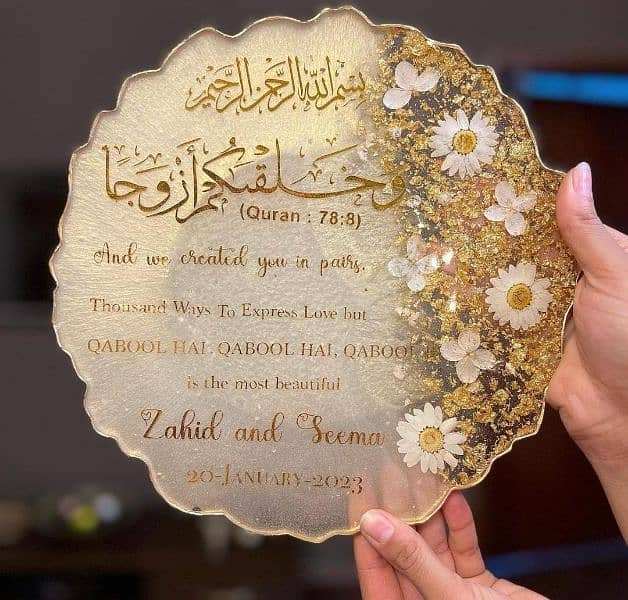 بسم الله الرحمن الرحيم
وَخَلَقْنَٰكُمْ أَزْوَٰجًا
(Quran : 78:8)
And we created you in pairs.
Thousand Ways To Express Love but
QABOOL HAI, QABOOL HAI, QABOOL
is the most beautiful
Zahid and Seema
20-January-2023